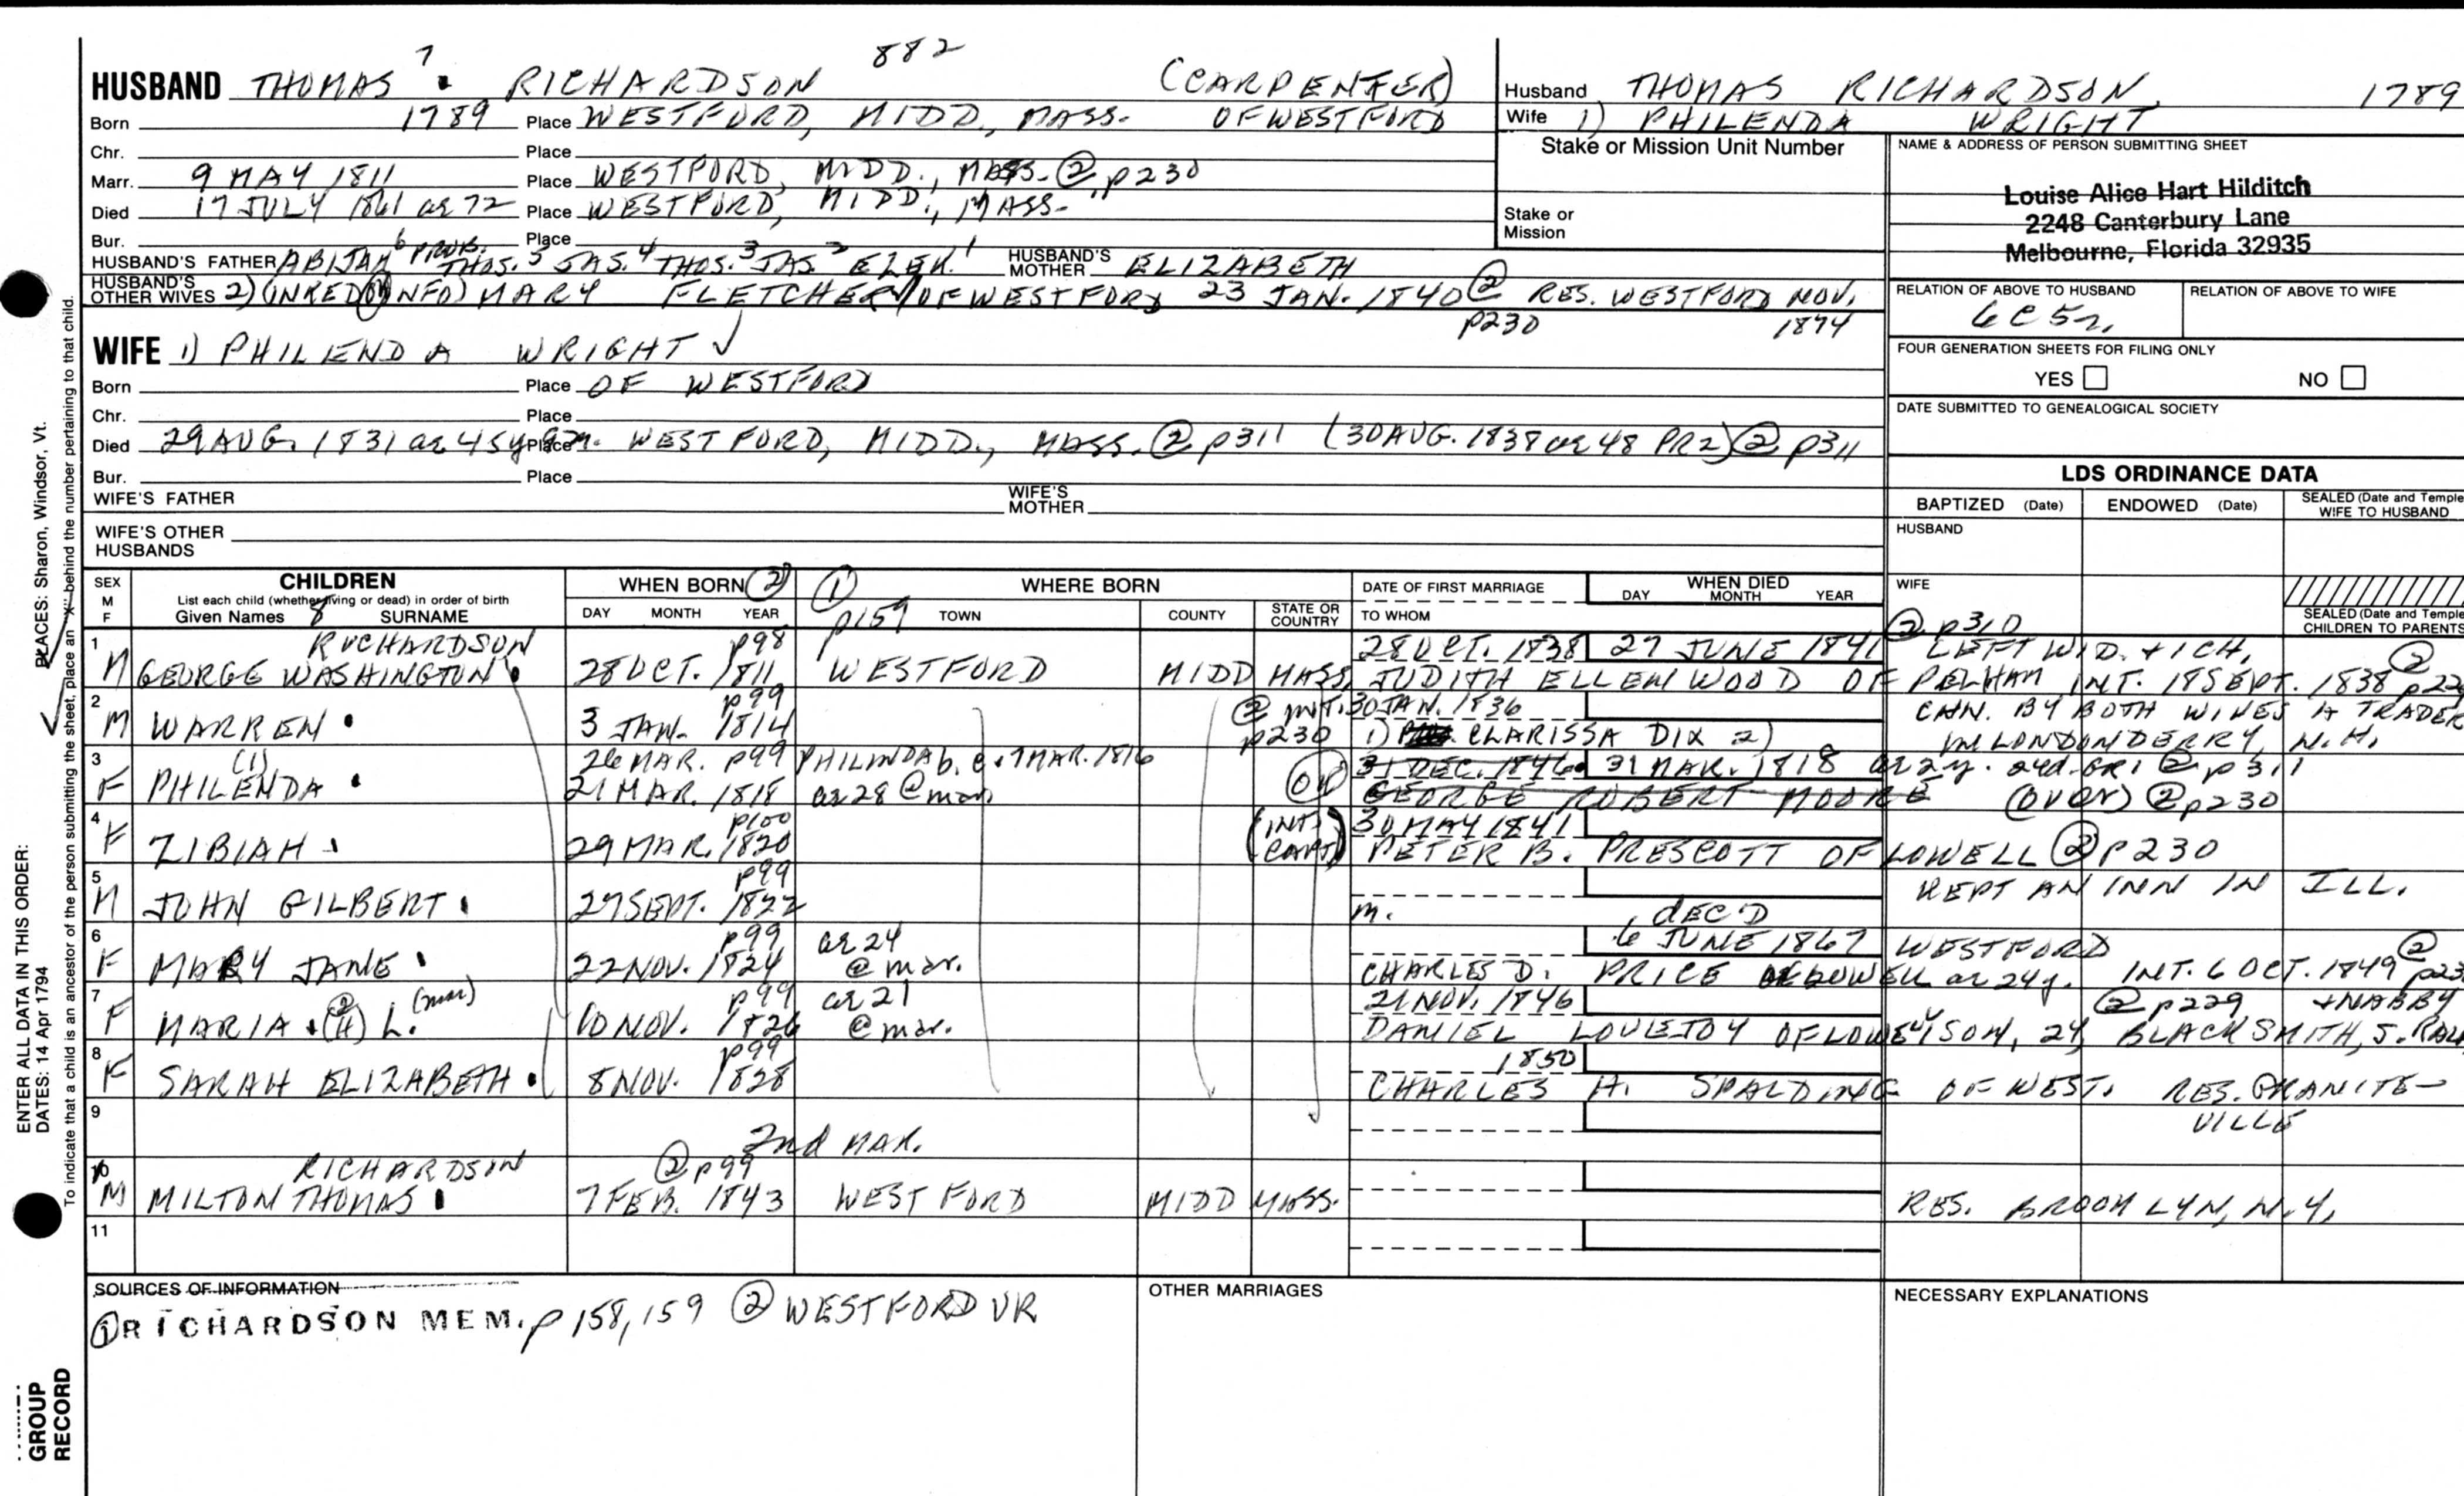 7 882
HUSBAND THOMAS RICHARDSON (CARPENTER)
Born 1789 Place WESTFORD, MIDD., MASS. OF WESTFORD
Chr. Place
Marr. 9 MAY 1811 Place WESTFORD, MIDD., MASS. ② p230
Died 17 JULY 1861 ae 72 Place WESTFORD, MIDD., MASS.
Bur. Place
HUSBAND'S FATHER ABIJAH 6 PROB. THOS. 5 JAS. 4 THOS. 3 JAS. 2 EZEK. 1 HUSBAND'S MOTHER ELIZABETH
HUSBAND'S OTHER WIVES 2) (INKED INFO) MARY FLETCHER OF WESTFORD 23 JAN. 1840 ② p230 RES. WESTFORD NOV. 1874
WIFE 1) PHILENDA WRIGHT ✓
Born Place OF WESTFORD
Chr. Place
Died 29 AUG. 1831 ae 45y Place WESTFORD, MIDD., MASS. ② p311 (30 AUG. 1838 ae 48 PR2) ② p311
Bur. Place
WIFE'S FATHER WIFE'S MOTHER
WIFE'S OTHER HUSBANDS
Husband THOMAS RICHARDSON, 1789
Wife 1) PHILENDA WRIGHT
Stake or Mission Unit Number
Stake or Mission
NAME & ADDRESS OF PERSON SUBMITTING SHEET
Louise Alice Hart Hilditch
2248 Canterbury Lane
Melbourne, Florida 32935
RELATION OF ABOVE TO HUSBAND RELATION OF ABOVE TO WIFE
6C5r,
FOUR GENERATION SHEETS FOR FILING ONLY
YES NO
DATE SUBMITTED TO GENEALOGICAL SOCIETY
LDS ORDINANCE DATA
BAPTIZED (Date) ENDOWED (Date) SEALED (Date and Temple WIFE TO HUSBAND
HUSBAND
WIFE
SEALED (Date and Temple
CHILDREN TO PARENTS
SEX M F CHILDREN WHEN BORN ② ① WHERE BORN DATE OF FIRST MARRIAGE WHEN DIED
List each child (whether living or dead) in order of birth
Given Names 8 SURNAME DAY MONTH YEAR p159 TOWN COUNTY STATE OR COUNTRY TO WHOM DAY MONTH YEAR
1 RICHARDSON p98 28 OCT. 1838 27 JUNE 1841 ② p310 LEFT WID. + 1 CH.
M GEORGE WASHINGTON 28 OCT. 1811 WESTFORD MIDD MASS. JUDITH ELLENWOOD OF PELHAM INT. 18 SEPT. 1838 ② p22
2 p99 ② INT. 30 JAN. 1836 CHN. BY BOTH WIVES A TRADER
M WARREN 3 JAN. 1814 p230 1) CLARISSA DIX 2) IN LONDONDERRY, N.H.
3 (1) 26 MAR. p99 PHILINDA b. c. 7 MAR. 1816 31 DEC. 1846 31 MAR. 1818 ae 2y. 24d. GR1 ② p311
F PHILENDA 21 MAR. 1818 ae 28 @ mar. GEORGE ROBERT MOORE (OVER) ② p230
4 p100 (INT) 30 MAY 1841
F ZIBIAH 29 MAR. 1820 PETER B. PRESCOTT OF LOWELL ② p230
5 p99 KEPT AN INN IN ILL.
M JOHN GILBERT 27 SEPT. 1822 m. DEC'D
6 p99 ae 24 6 JUNE 1867 WESTFORD
F MARY JANE 22 NOV. 1824 @ mar. CHARLES D. PRICE OF LOWELL ae 24y. INT. 6 OCT. 1849 ② p23
7 p99 ae 21 21 NOV. 1846 ② p229 + NABBY
F MARIA (② H) L. (mar) 10 NOV. 1826 @ mar. DANIEL LOVEJOY OF LOWELL, SON, 24 BLACKSMITH, S.
8 p99 1850
F SARAH ELIZABETH 8 NOV. 1828 CHARLES H. SPALDING OF WEST. RES. GRANITE-
VILLE
9
2nd MAR.
10 RICHARDSON ② p99
M MILTON THOMAS 7 FEB. 1843 WESTFORD MIDD MASS. RES. BROOKLYN, N.Y.
11
SOURCES OF INFORMATION OTHER MARRIAGES NECESSARY EXPLANATIONS
① RICHARDSON MEM. p 158, 159 ② WESTFORD VR
ENTER ALL DATA IN THIS ORDER:
DATES: 14 Apr 1794 PLACES: Sharon, Windsor, Vt.
To indicate that a child is an ancestor of the person submitting the sheet, place an "x" behind the number pertaining to that child.
GROUP
RECORD